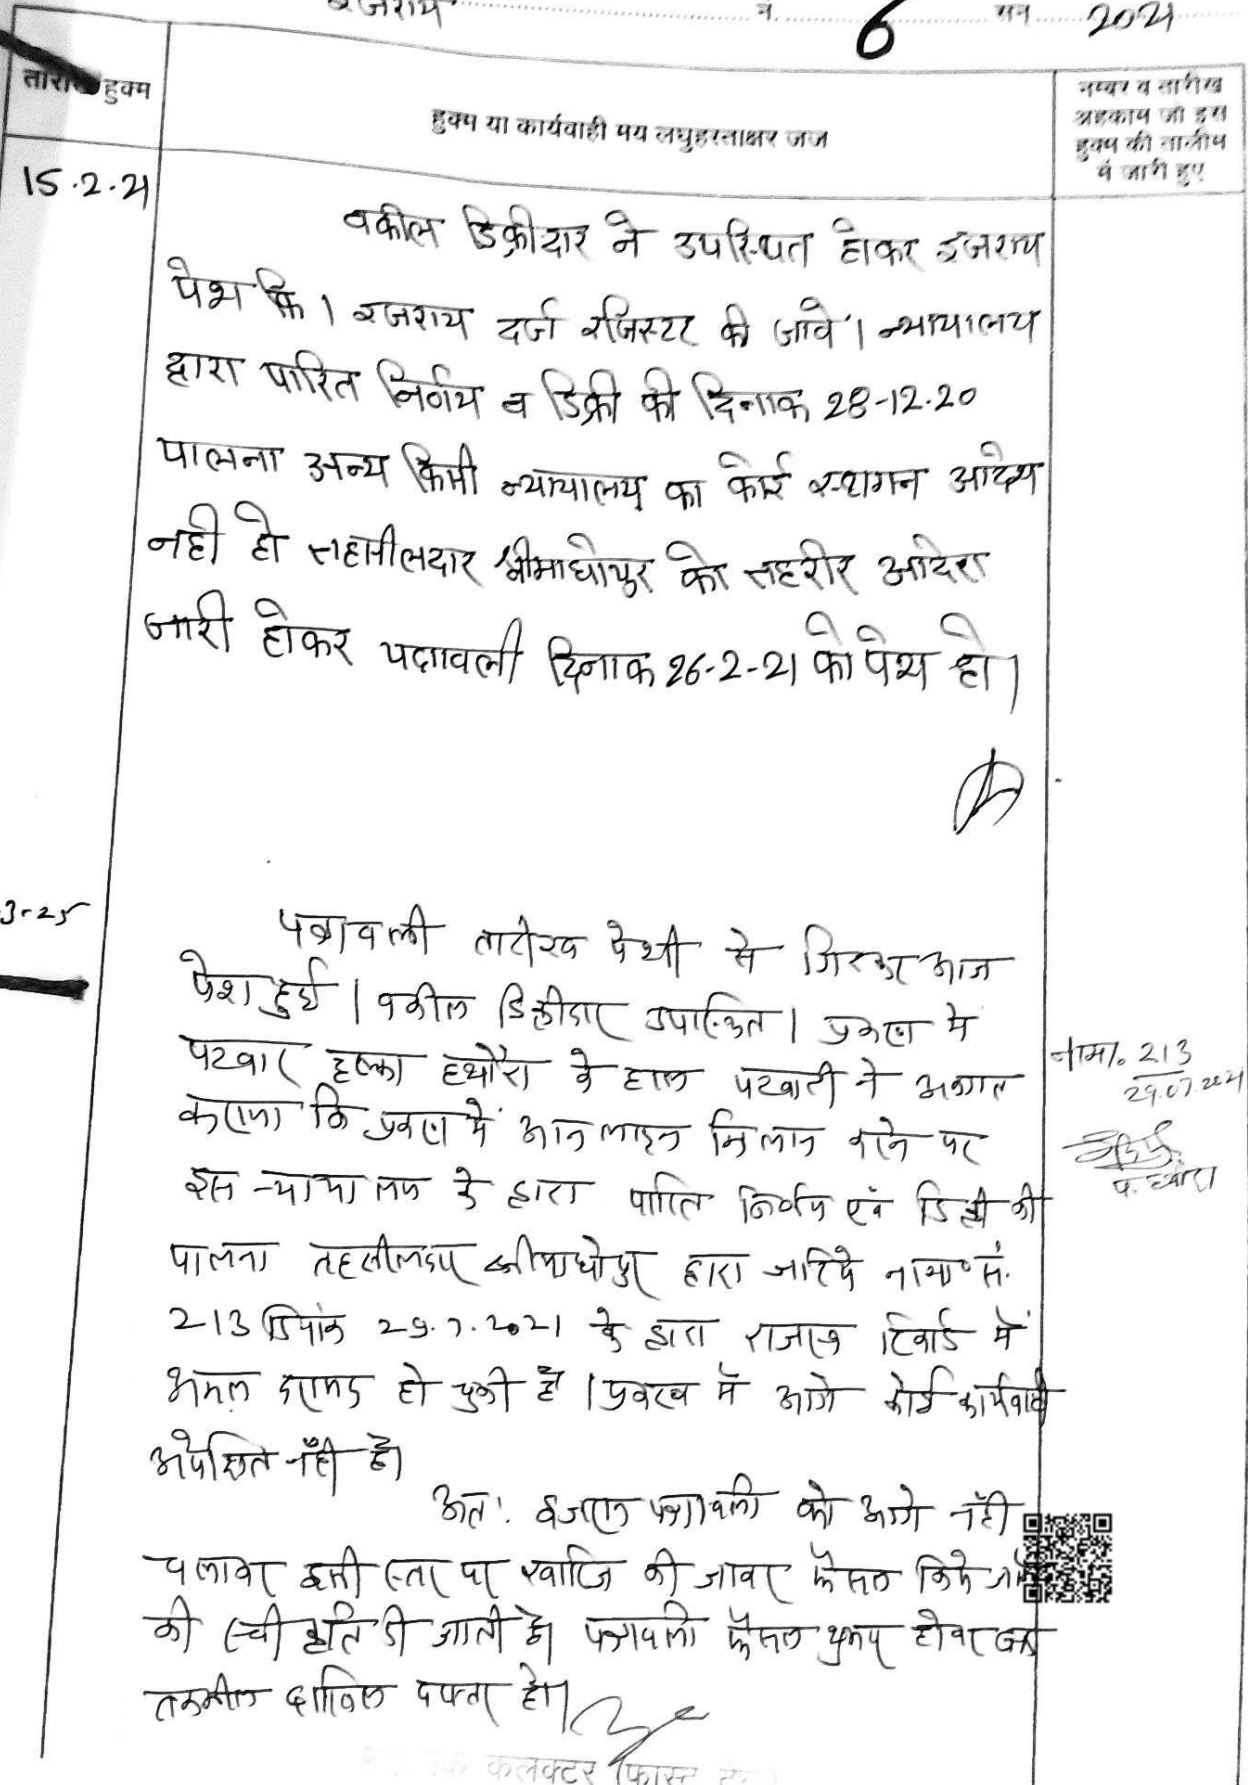 इजराय नं. 6 सन 2021
तारीख हुक्म
हुक्म या कार्यवाही मय लघुहस्ताक्षर जज
नम्बर व तारीख
अहकाम जो इस
हुक्म की तामील
में जारी हुए
15.2.21
वकील डिक्रीदार ने उपस्थित होकर इजराय
पेश कि। इजराय दर्ज रजिस्टर की जावे। न्यायालय
द्वारा पारित निर्णय व डिक्री की दिनाक 28-12.20
पालना अन्य किसी न्यायालय का कोई स्थगन आदेश
नही हो तहसीलदार श्रीमाधोपुर को तहरीर आदेश
जारी होकर पत्रावली दिनाक 26-2-21 को पेश हो।
3-25
पत्रावली तारीख पेशी से आज
पेश हुई। वकील डिक्रीदार उपस्थित। प्रकरण में
पटवार हल्का के हाल पटवारी ने अवगत
कराया कि प्रकरण में आनलाइन मिलान करने पर
इस न्यायालय के द्वारा पारित निर्णय एवं डिक्री की
पालना तहसीलदार श्रीमाधोपुर द्वारा जरिये नामा० सं.
213 दिनांक 29.7.2021 के द्वारा राजस्व रिकार्ड में
अमल दरामद हो चुकी है। प्रकरण में आगे कोई कार्यवाही
अपेक्षित नहीं है।
नामा. 213
29.07.2021
अत: इजराय पत्रावली को आगे नहीं
चलाकर इसी स्तर पर खारिज की जाकर फैसल किये जाने
की स्वीकृति दी जाती है। पत्रावली फैसल शुमार होकर बाद
तकमील दाखिल दफ्तर हो।
कलक्टर (फास्ट